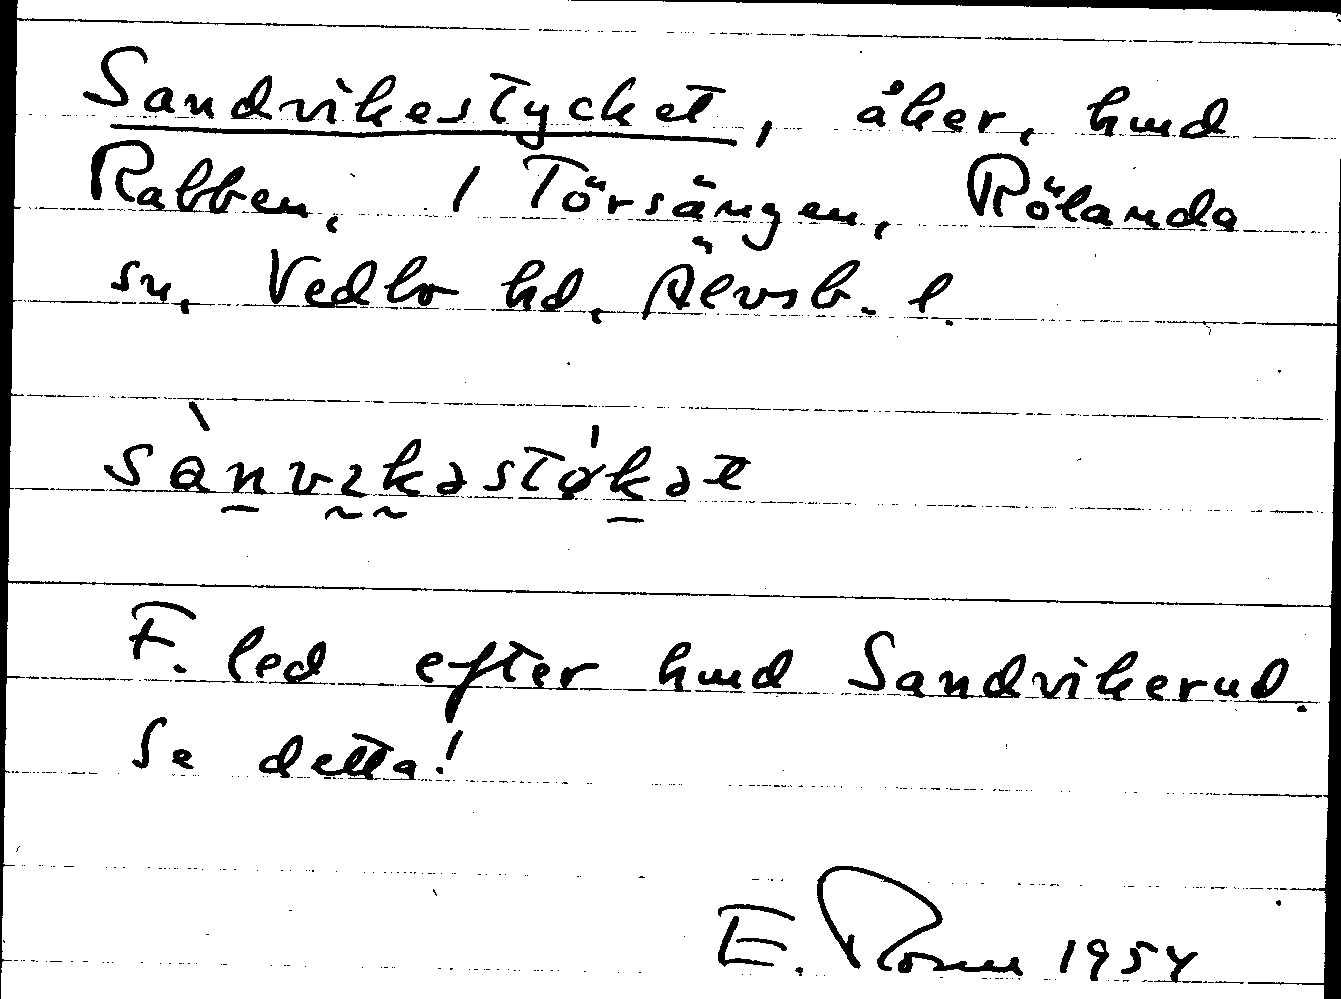 Sandvikestycket, åker, hmd
Rabben, 1 Törsängen, Rölanda
sn, Vedbo hd, Älvsb. l.
sànvɩkəstø'kət
F. led efter hmd Sandvikerud.
Se detta!
E. 1954